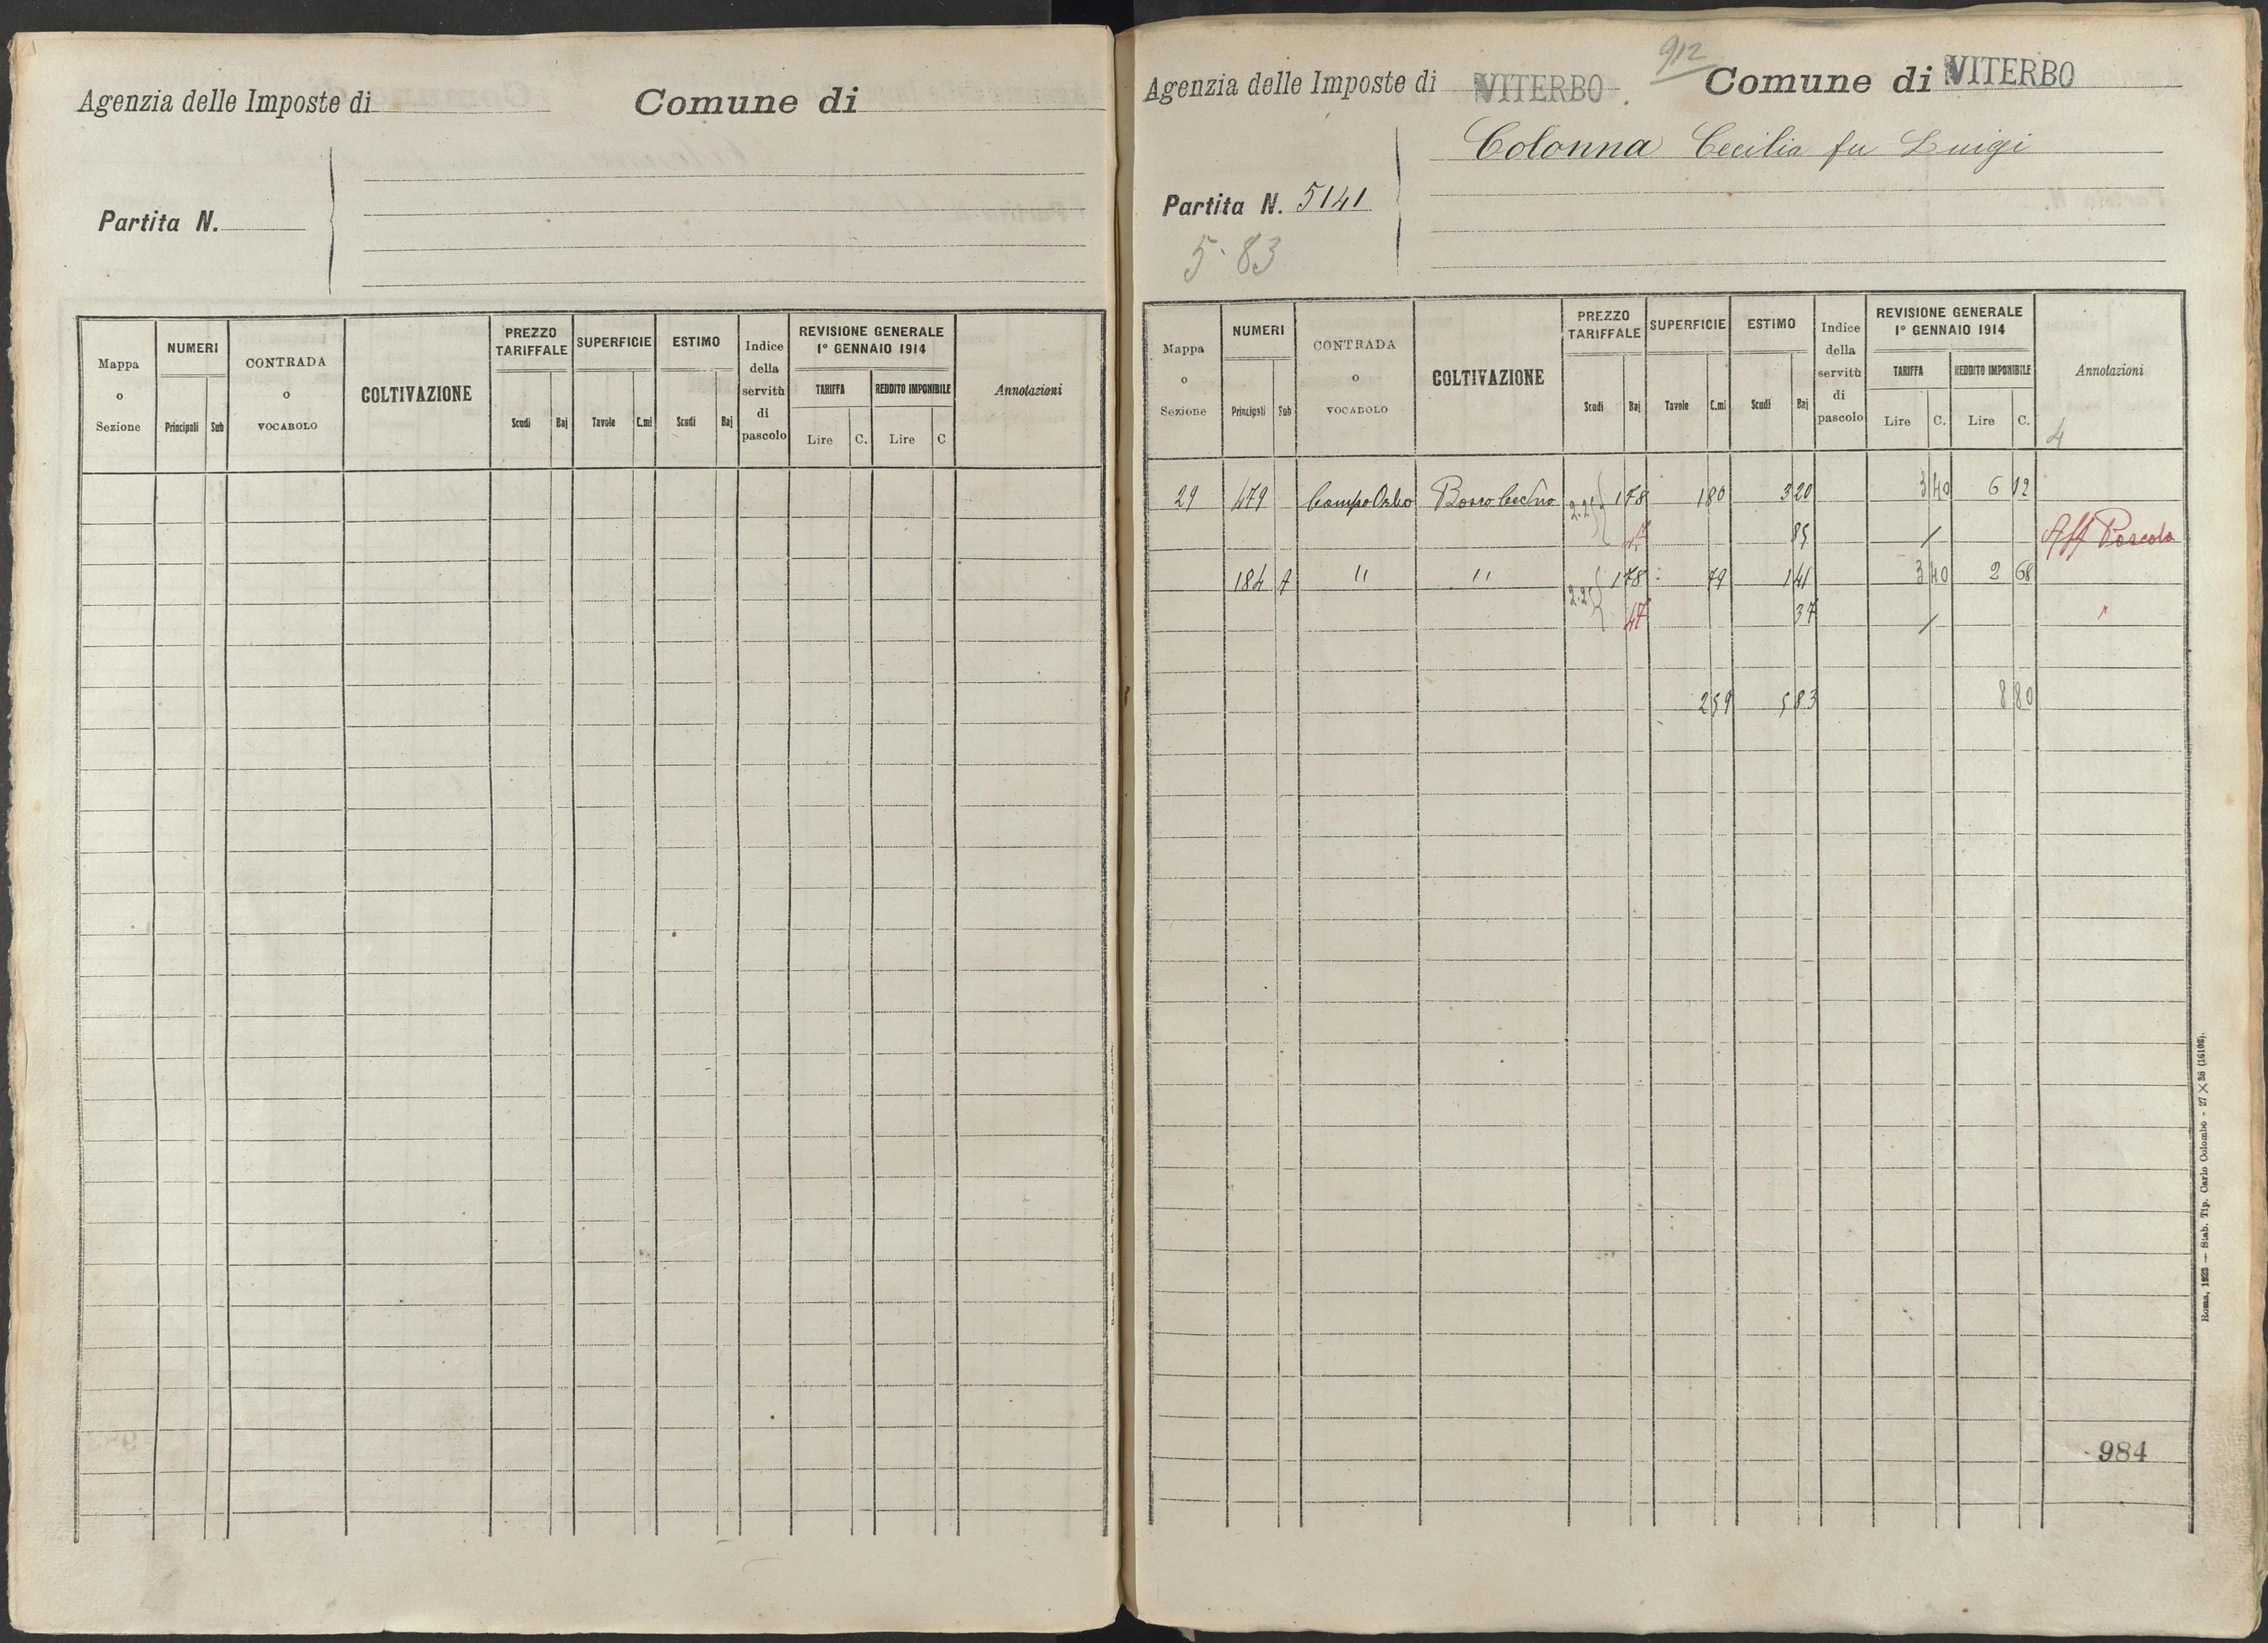 Agenzia delle Imposte di Comune di
Partita N.
Mappa o Sezione NUMERI Principali Sub CONTRADA o VOCABOLO COLTIVAZIONE PREZZO TARIFFALE Scudi Baj SUPERFICIE Tavole C.mi ESTIMO Scudi Baj Indice della servitù di pascolo REVISIONE GENERALE 1° GENNAIO 1914 TARIFFA Lire C. REDDITO IMPONIBILE Lire C Annotazioni
912
Agenzia delle Imposte di VITERBO Comune di VITERBO
Colonna Cecilia fu Luigi
Partita N. 5141
5.83
Mappa o Sezione NUMERI Principali Sub CONTRADA o VOCABOLO COLTIVAZIONE PREZZO TARIFFALE Scudi Baj SUPERFICIE Tavole C.mi ESTIMO Scudi Baj Indice della servitù di pascolo REVISIONE GENERALE 1° GENNAIO 1914 TARIFFA Lire C. REDDITO IMPONIBILE Lire C. Annotazioni
4
29 479 Campo Orbo 2.25 1 78 1 80 3 20 3 40 6 12
47 85 / Aff Pascolo
184 A " " 2.25 1 78 79 1 41 3 40 2 68
47 37 / "
2 59 5 83 8 80
984
Roma, 1923 — Stab. Tip. Carlo Colombo - 27 X 38 (16108).